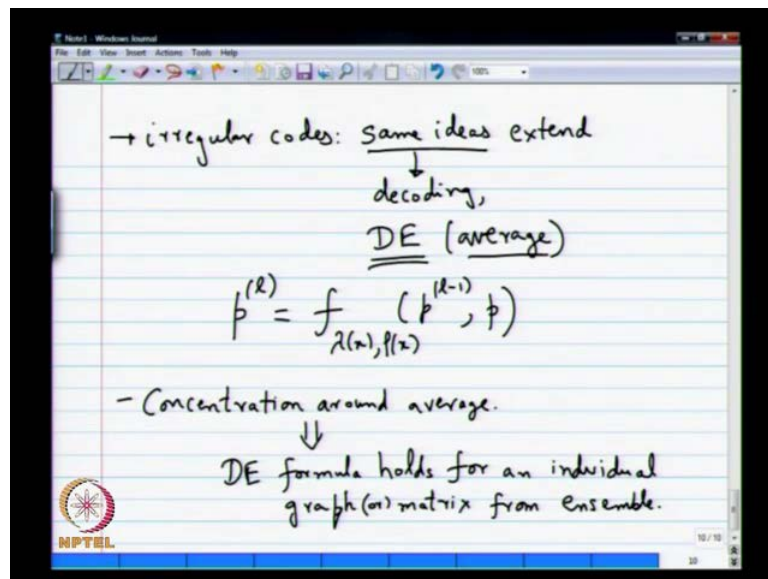 Note1 - Windows Journal
File Edit View Insert Actions Tools Help
100%
→ irregular codes: same ideas extend
↓
decoding,
DE (average)
p^(l) = f_λ(x),ρ(x) (p^(l-1), p)
- Concentration around average.
⇓
DE formula holds for an individual
graph (or) matrix from ensemble.
NPTEL
10 / 10
10